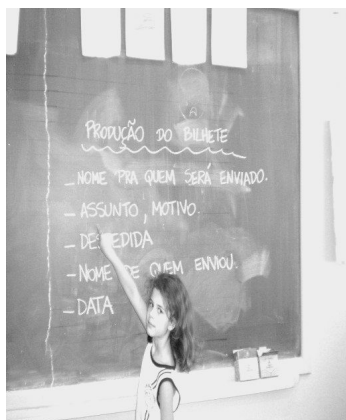 PRODUÇÃO DO BILHETE
- NOME PRA QUEM SERÁ ENVIADO.
- ASSUNTO, MOTIVO.
- DESPEDIDA
- NOME DE QUEM ENVIOU.
- DATA